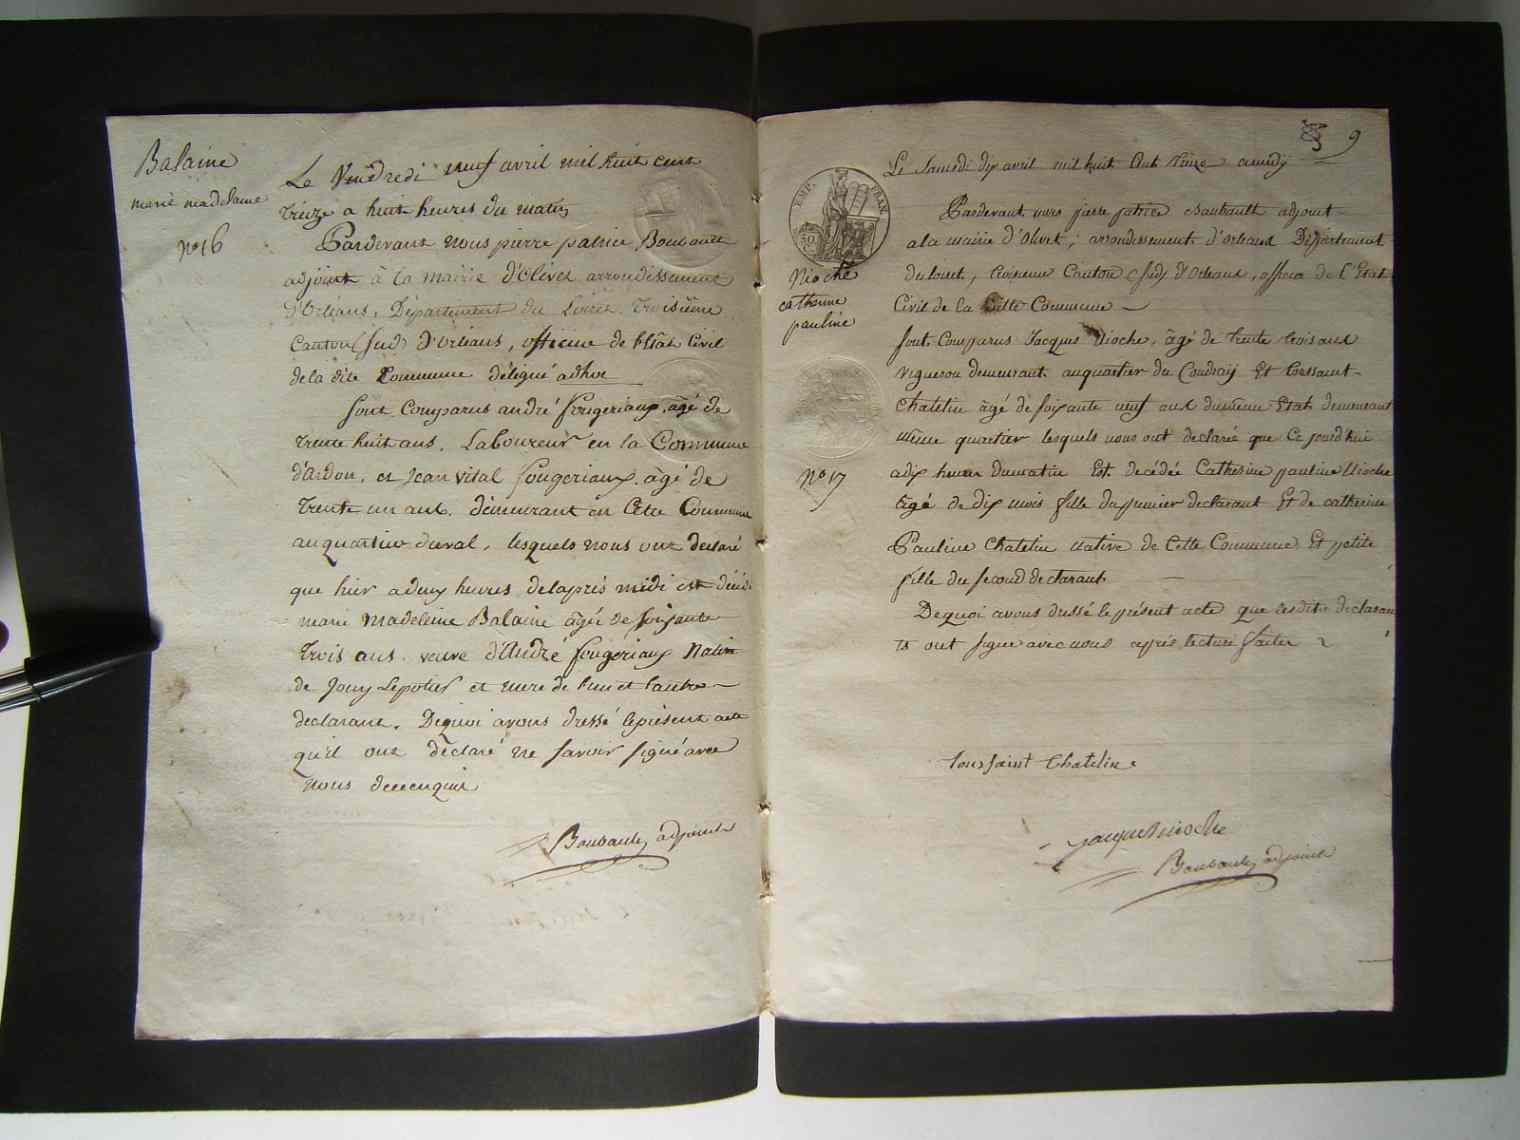 Balaine
marie madelaine
No 16
Le Vendredi neuf avril mil huit cent
treize a huit heures du matin
Pardevant nous pierre patrice Boubault
adjoint à la mairie d'Olivet arrondissement
d'Orléans, Département du Loiret troisieme
Canton (sud) d'Orléans, officier de l'état Civil
de la dite Commune délégué adhoc
sont Comparus andré fougeriaux, âgé de
trente huit ans, Laboureur en la Commune
d'ardon, et Jean vital fougeriaux, âgé de
trente un ans, demeurant en Cette Commune
au quartier duval, lesquels nous ont declaré
que hier a deux heures delaprès midi est décédé
marie Madeleine Balaine âgée de soixante
trois ans, veuve d'André fougeriaux Native
de Jouy Lepotier et mere de l'un et l'autre
declarant. Dequoi avons dressé leprésent acte
qu'il ont déclaré ne savoir signé avec
nous
Boubault adjoint
9
EMP. FRAN.
Nioche
catherine
pauline
No 17
Le Samedi dix avril mil huit Cent treize amidy
Pardevant nous pierre patrice Boubault adjoint
ala mairie d'Olivet, arrondissement d'orléans Département
du loiret, troisieme Canton (sud) d'Orléans, officier de l'Etat
Civil de la Commune
sont Comparus Jacques Nioche, âgé de trente trois ans
vigneron demeurant auquartier du Coudray Et toussaint
Chatelin âgé de soixante neuf ans dumême Etat demeurant
même quartier lesquels nous ont declaré que Ce jourd'hui
adix heures dumatin Est decédée Catherine pauline Nioche
âgé de dix mois fille dupremier declarant Et de catherine
Pauline Chatelin native de Cette Commune Et petite
fille du second declarant
Dequoi avons dressé leprésent acte que lesdits declaran
ts ont signé avec nous après lecture faite
toussaint Chatelin
jacque nioche
Boubault adjoint